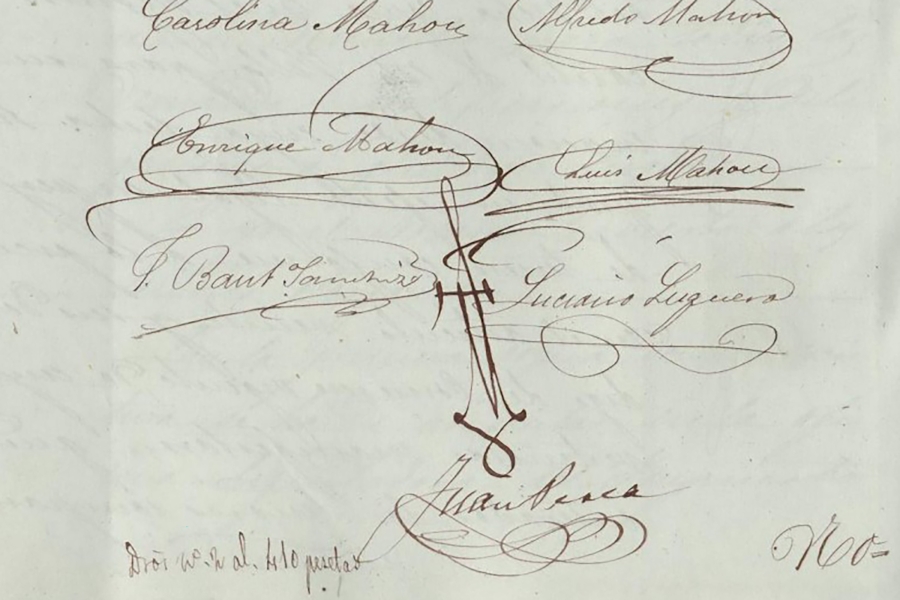 Carolina Mahou Alfredo Mahou
Enrique Mahou Luis Mahou
J. Baut Sanchiz Luciano Luguero
Juan Perea
nº 2 al. 410 pesetas
No=